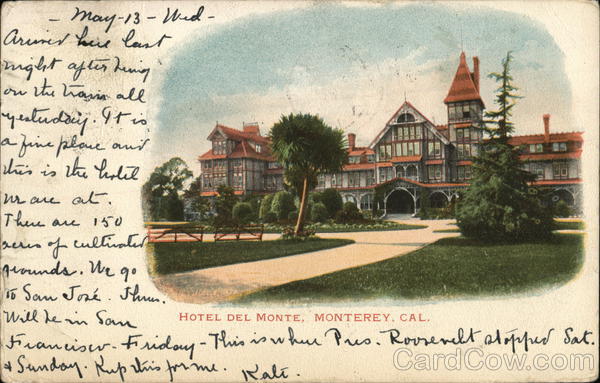 - May - 13 - Wed -
Arrived here last
night after being
on the train all
yesterday. It is
a fine place and
this is the hotel
we are at.
There are 150
acres of cultivated
grounds. We go
to San José. Thurs.
Will be in San
Francisco - Friday - This is where Pres. Roosevelt stopped Sat.
& Sunday. Keep this for me. Kate.
HOTEL DEL MONTE, MONTEREY, CAL.
CardCow.com